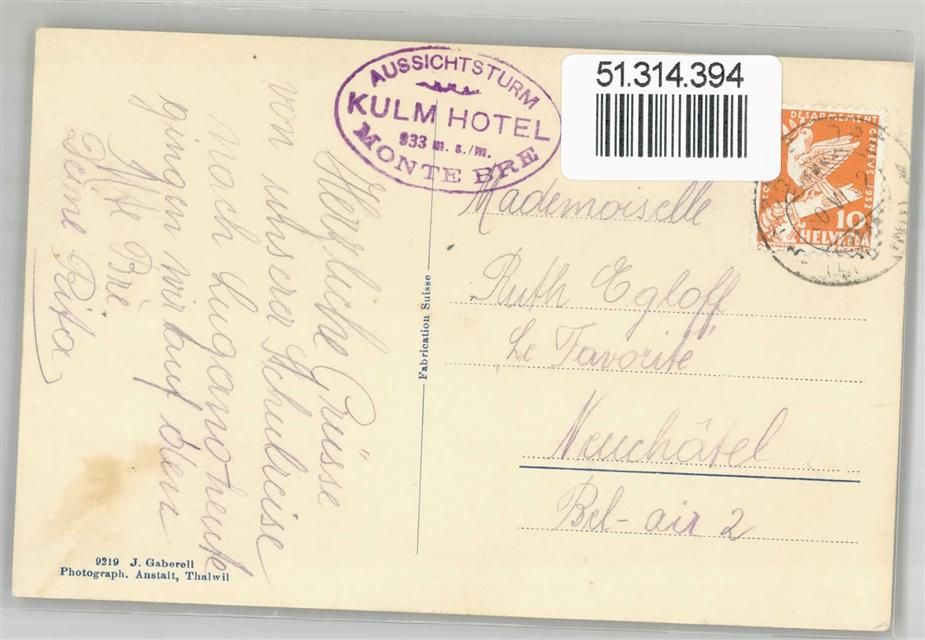 AUSSICHTSTURM
KULM HOTEL
933 m. s./m.
MONTE BRE
51.314.394
DÉSARMEMENT
GENÈVE 1932
10
HELVETIA
Herzliche Grüsse
von unserer Schulreise
nach Lugano. Heute
gingen wir auf den
Mte Brè.
Deine Rita
Fabrication Suisse
Mademoiselle
Ruth Egloff
Le Favorite
Neuchâtel
Bel-air 2
9219 J. Gaberell
Photograph. Anstalt, Thalwil